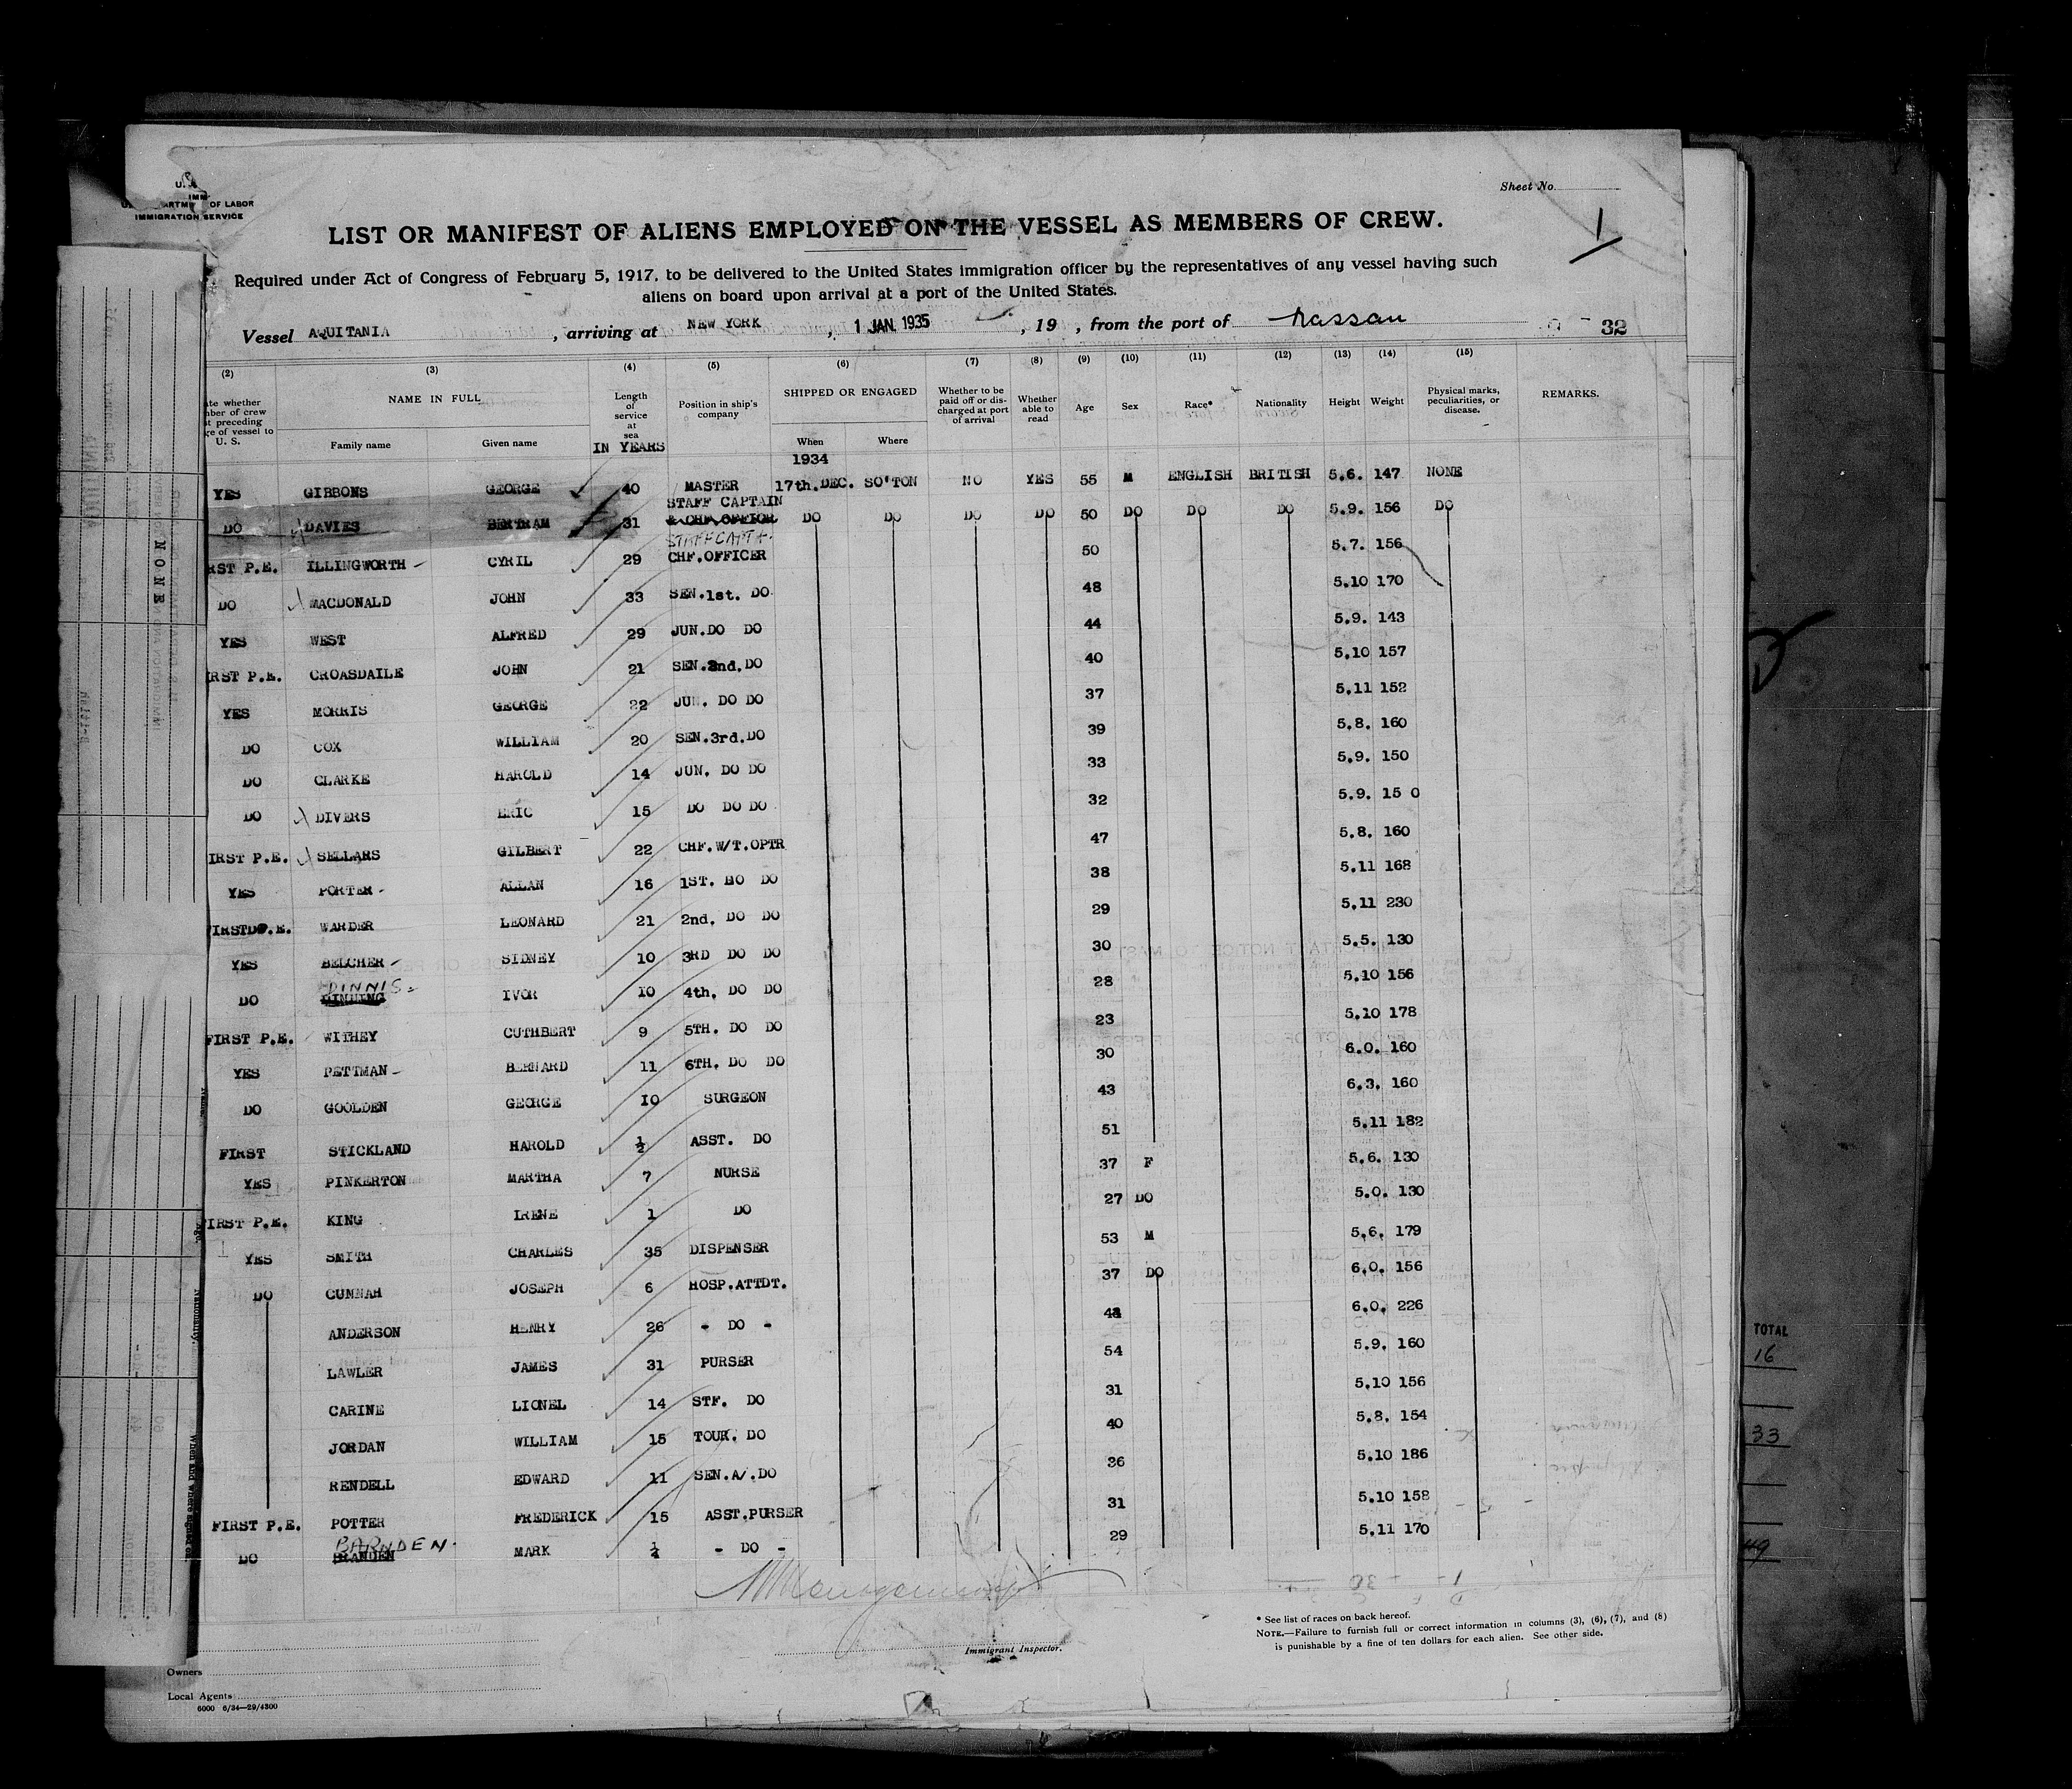 OF LABOR
IMMIGRATION SERVICE
Sheet No.
1
LIST OR MANIFEST OF ALIENS EMPLOYED ON THE VESSEL AS MEMBERS OF CREW.
Required under Act of Congress of February 5, 1917, to be delivered to the United States immigration officer by the representatives of any vessel having such
aliens on board upon arrival at a port of the United States.
Vessel AQUITANIA, arriving at NEW YORK, 1 JAN. 1935, 19 , from the port of Nassau 32
(2) (3) (4) (5) (6) (7) (8) (9) (10) (11) (12) (13) (14) (15)
whether of crew preceding of vessel to U. S. NAME IN FULL Family name Given name Length of service at sea IN YEARS Position in ship's company SHIPPED OR ENGAGED When Where Whether to be paid off or discharged at port of arrival Whether able to read Age Sex Race* Nationality Height Weight Physical marks, peculiarities, or disease. REMARKS.
1934
YES GIBBONS GEORGE 40 MASTER 17th.DEC. SO'TON NO YES 55 M ENGLISH BRITISH 5.6. 147 NONE
DO DAVIES BERTRAM 31 STAFF CAPTAIN & CHF.OFFICER STAFF CAPT. DO DO DO DO 50 DO DO DO 5.9. 156 DO
RST P.E. ILLINGWORTH CYRIL 29 CHF.OFFICER 50 5.7. 156
DO MACDONALD JOHN 33 SEN.1st. DO 48 5.10 170
YES WEST ALFRED 29 JUN.DO DO 44 5.9. 143
RST P.E. CROASDAILE JOHN 21 SEN.2nd.DO 40 5.10 157
YES MORRIS GEORGE 22 JUN. DO DO 37 5.11 152
DO COX WILLIAM 20 SEN.3rd.DO 39 5.8. 160
DO CLARKE HAROLD 14 JUN. DO DO 33 5.9. 150
DO DIVERS ERIC 15 DO DO DO 32 5.9. 15 0
IRST P.E. SELLARS GILBERT 22 CHF.W/T.OPTR 47 5.8. 160
YES PORTER ALLAN 16 1ST. DO DO 38 5.11 168
IRST P.E. WARDER LEONARD 21 2nd. DO DO 29 5.11 230
YES BELCHER SIDNEY 10 3RD DO DO 30 5.5. 130
DO DINNIS IVOR 10 4th. DO DO 28 5.10 156
FIRST P.E. WITHEY CUTHBERT 9 5TH. DO DO 23 5.10 178
YES PETTMAN BERNARD 11 6TH. DO DO 30 6.0. 160
DO GOOLDEN GEORGE 10 SURGEON 43 6.3. 160
FIRST STICKLAND HAROLD ½ ASST. DO 51 5.11 182
YES PINKERTON MARTHA 7 NURSE 37 F 5.6. 130
FIRST P.E. KING IRENE 1 DO 27 DO 5.0. 130
YES SMITH CHARLES 35 DISPENSER 53 M 5.6. 179
DO CUNNAH JOSEPH 6 HOSP.ATTDT. 37 DO 6.0. 156
ANDERSON HENRY 26 - DO - 6.0. 226
LAWLER JAMES 31 PURSER 54 5.9. 160
CARINE LIONEL 14 STF. DO 31 5.10 156
JORDAN WILLIAM 15 TOUR. DO 40 5.8. 154
RENDELL EDWARD 11 SEN.A/.DO 36 5.10 186
FIRST P.E. POTTER FREDERICK 15 ASST.PURSER 31 5.10 158
DO BARNDEN BRANDEN MARK - DO - 29 5.11 170
Immigrant Inspector.
* See list of races on back hereof.
NOTE.—Failure to furnish full or correct information in columns (3), (6), (7), and (8)
is punishable by a fine of ten dollars for each alien. See other side.
Owners
Local Agents
6000 6/34—29/4300
NONE
TOTAL
16
33